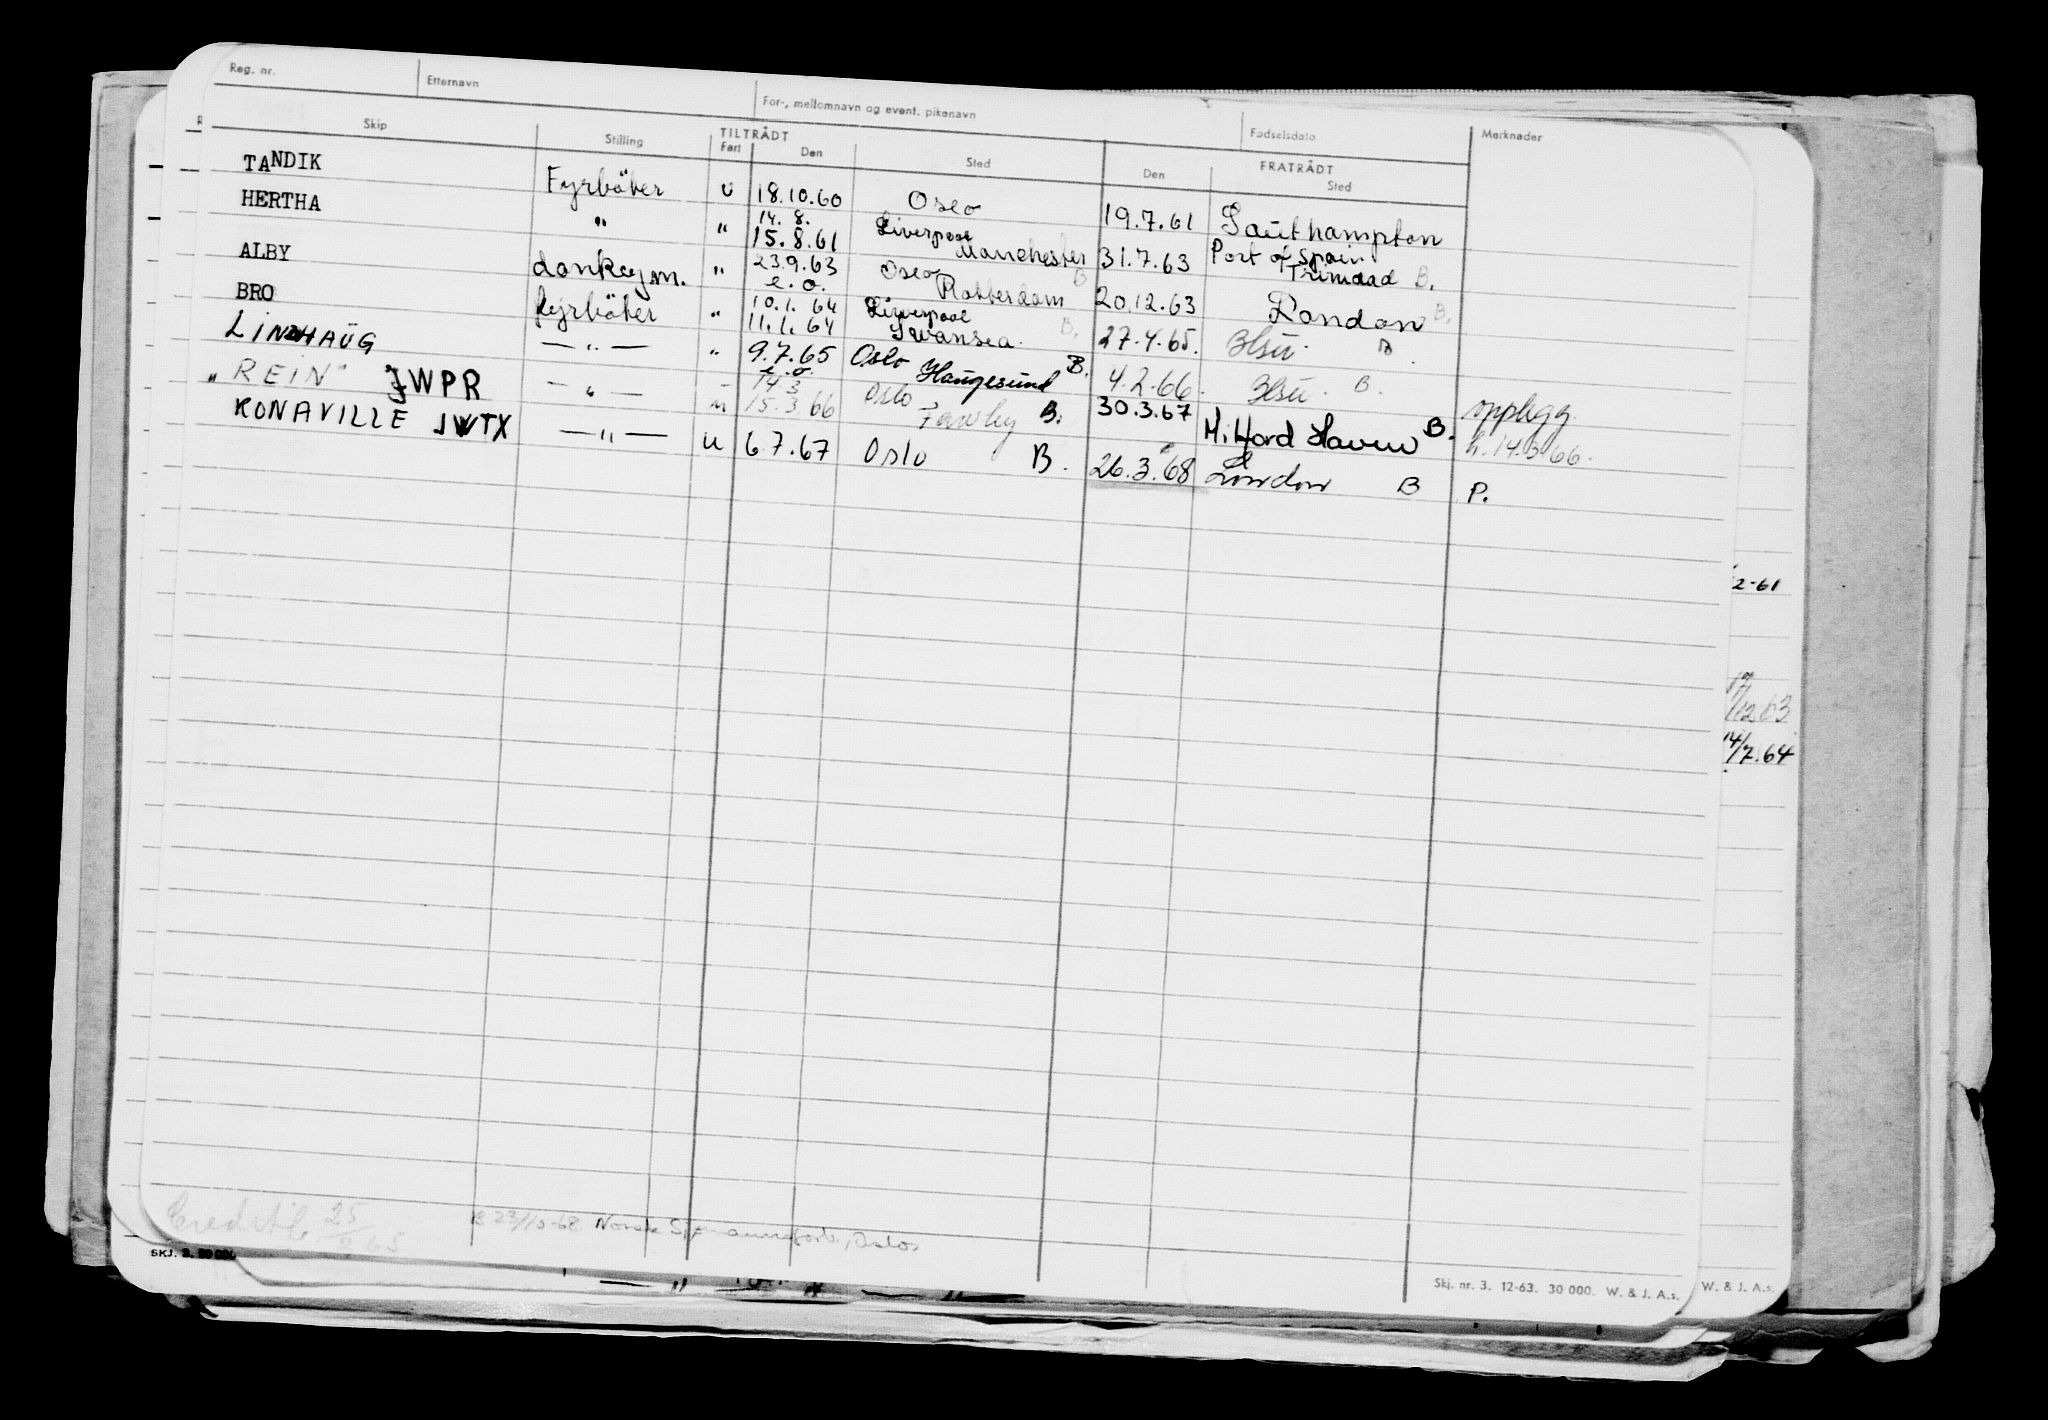 Reg. nr. Etternavn For-, mellomnavn og event. pikenavn Fødselsdato Merknader
Skip Stilling TILTRÅDT FRATRÅDT
Fart Den Sted Den Sted
TANDIK Fyrbøter u 18.10.60 Oslo 19.7.61 Southampton
HERTHA " " 14.8. Liverpool
15.8.61 Manchester 31.7.63 Port of Spain
Trinidad B.
ALBY donkeym. " 23.9.63 Oslo B
e.o. Rotterdam 20.12.63 London B.
BRO fyrbøter " 10.1.64 Liverpool
11.1.64 Swansea B. 27.4.65. Blsu. B.
LINDHAUG — " — " 9.7.65 Oslo B.
e.o. Haugesund 4.2.66. Blsu. B. opplegg.
"REIN" JWPR — " — " 14.3 Oslo,
15.3.66 Fawley B. 30.3.67 Milford Haven B. h. 14.3.66.
RONAVILLE JWTX — " — u 6.7.67 Oslo B. 26.3.68 London B P.
2-61
17/12 63
14/7.64
25
B 23/10-68 Norsk Sjømannsforb., Oslo.
SKJ. 3. 30 000
Skj. nr. 3. 12-63. 30 000. W. & J. A.s. W. & J. A.s.
— " —